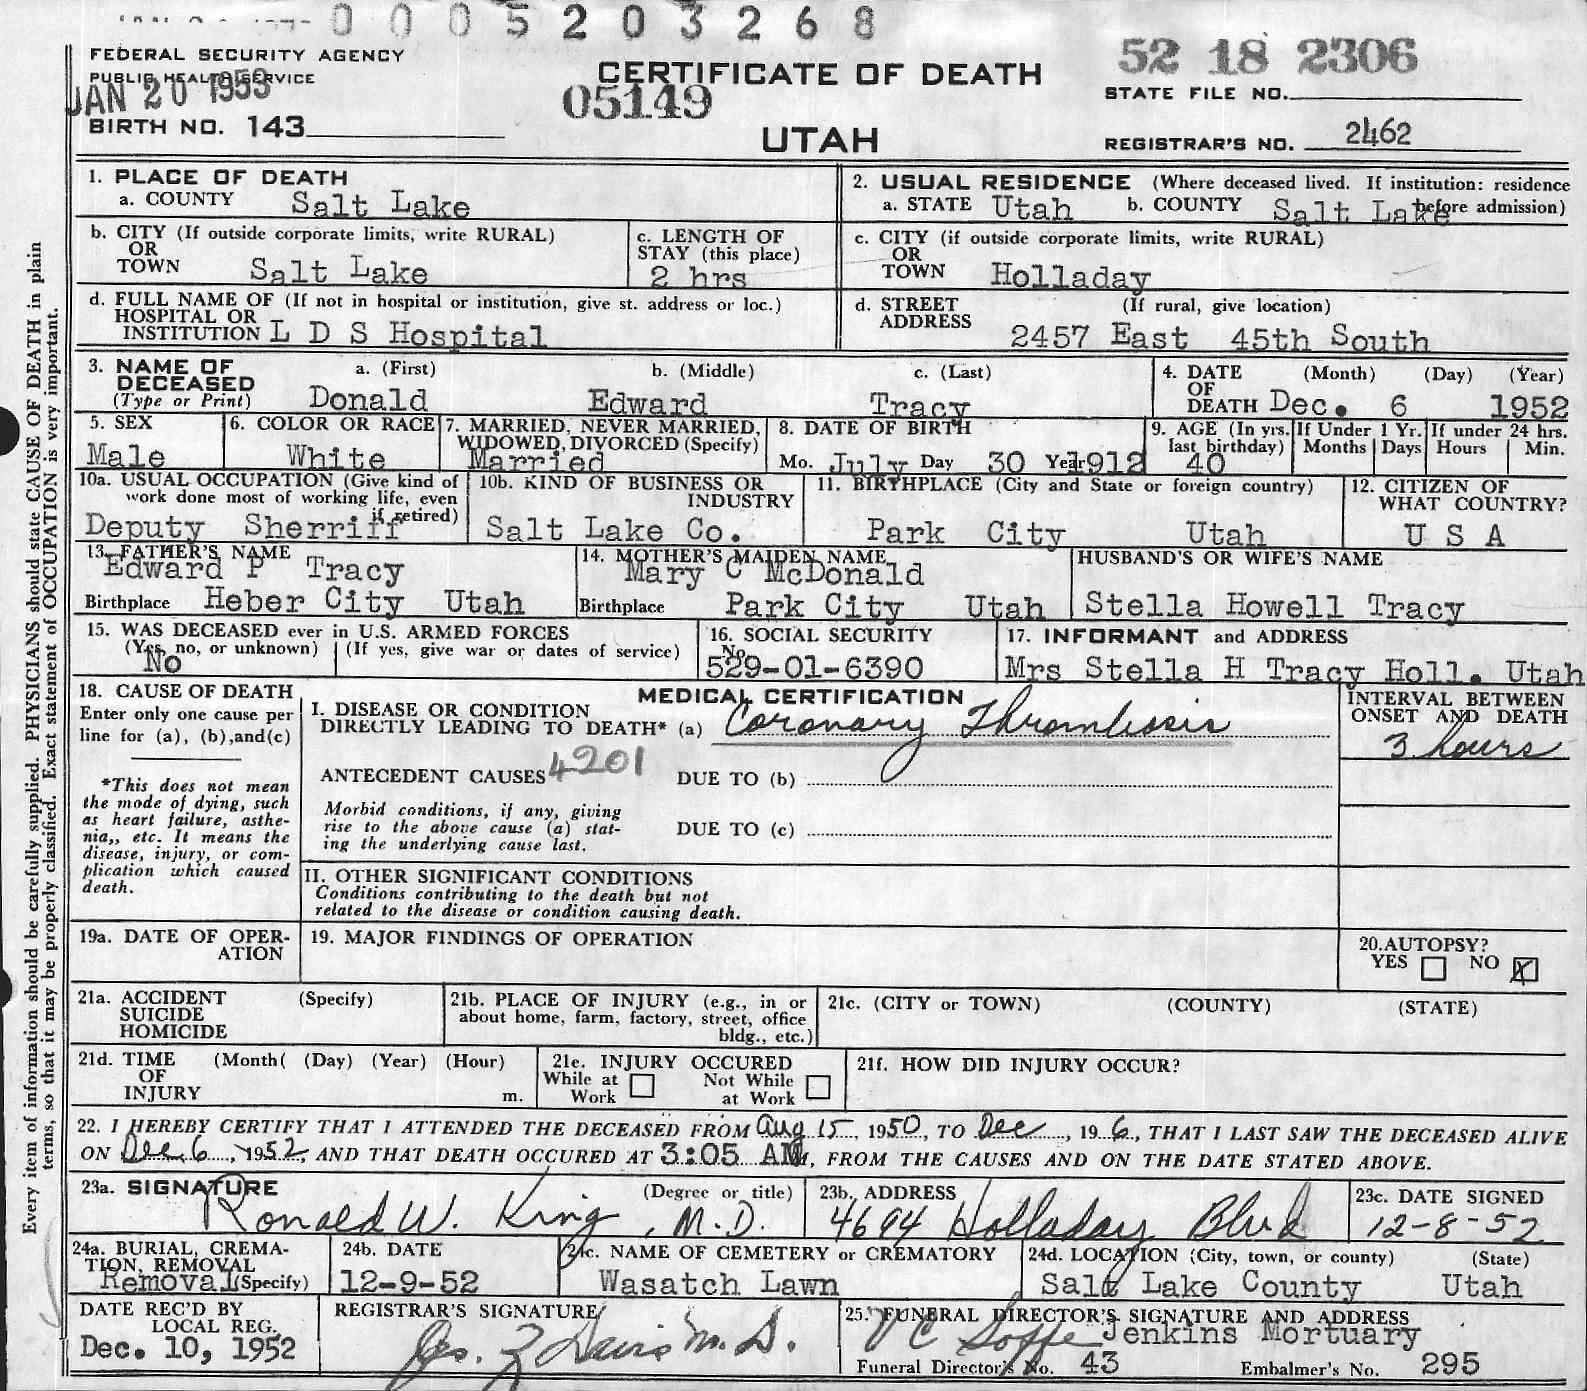 0005203268
FEDERAL SECURITY AGENCY
PUBLIC HEALTH SERVICE
JAN 20 1953
BIRTH NO. 143
CERTIFICATE OF DEATH
05149
UTAH
52 18 2306
STATE FILE NO.
REGISTRAR'S NO. 2462
Every item of information should be carefully supplied. PHYSICIANS should state CAUSE OF DEATH in plain
terms, so that it may be properly classified. Exact statement of OCCUPATION is very important.
1. PLACE OF DEATH
a. COUNTY Salt Lake
2. USUAL RESIDENCE (Where deceased lived. If institution: residence
before admission)
a. STATE Utah b. COUNTY Salt Lake
b. CITY (If outside corporate limits, write RURAL)
OR
TOWN Salt Lake
c. LENGTH OF
STAY (this place)
2 hrs
c. CITY (if outside corporate limits, write RURAL)
OR
TOWN Holladay
d. FULL NAME OF (If not in hospital or institution, give st. address or loc.)
HOSPITAL OR
INSTITUTION L D S Hospital
d. STREET (If rural, give location)
ADDRESS 2457 East 45th South
3. NAME OF a. (First) b. (Middle) c. (Last)
DECEASED
(Type or Print) Donald Edward Tracy
4. DATE (Month) (Day) (Year)
OF
DEATH Dec. 6 1952
5. SEX
Male
6. COLOR OR RACE
White
7. MARRIED, NEVER MARRIED,
WIDOWED, DIVORCED (Specify)
Married
8. DATE OF BIRTH
Mo. July Day 30 Year 1912
9. AGE (In yrs.
last birthday)
40
If Under 1 Yr.
Months Days
If under 24 hrs.
Hours Min.
10a. USUAL OCCUPATION (Give kind of
work done most of working life, even
if retired)
Deputy Sherriff
10b. KIND OF BUSINESS OR
INDUSTRY
Salt Lake Co.
11. BIRTHPLACE (City and State or foreign country)
Park City Utah
12. CITIZEN OF
WHAT COUNTRY?
U S A
13. FATHER'S NAME
Edward P Tracy
Birthplace Heber City Utah
14. MOTHER'S MAIDEN NAME
Mary C McDonald
Birthplace Park City Utah
HUSBAND'S OR WIFE'S NAME
Stella Howell Tracy
15. WAS DECEASED ever in U.S. ARMED FORCES
(Yes, no, or unknown) (If yes, give war or dates of service)
No
16. SOCIAL SECURITY
No.
529-01-6390
17. INFORMANT and ADDRESS
Mrs Stella H Tracy Holl. Utah
18. CAUSE OF DEATH
Enter only one cause per
line for (a), (b),and(c)
*This does not mean
the mode of dying, such
as heart failure, asthe-
nia,, etc. It means the
disease, injury, or com-
plication which caused
death.
MEDICAL CERTIFICATION
I. DISEASE OR CONDITION
DIRECTLY LEADING TO DEATH* (a) Coronary Thrombosis
INTERVAL BETWEEN
ONSET AND DEATH
3 hours
ANTECEDENT CAUSES 4201 DUE TO (b)
Morbid conditions, if any, giving
rise to the above cause (a) stat-
ing the underlying cause last.
DUE TO (c)
II. OTHER SIGNIFICANT CONDITIONS
Conditions contributing to the death but not
related to the disease or condition causing death.
19a. DATE OF OPER-
ATION
19. MAJOR FINDINGS OF OPERATION
20.AUTOPSY?
YES NO X
21a. ACCIDENT (Specify)
SUICIDE
HOMICIDE
21b. PLACE OF INJURY (e.g., in or
about home, farm, factory, street, office
bldg., etc.)
21c. (CITY or TOWN) (COUNTY) (STATE)
21d. TIME (Month( (Day) (Year) (Hour)
OF
INJURY m.
21e. INJURY OCCURED
While at Not While
Work at Work
21f. HOW DID INJURY OCCUR?
22. I HEREBY CERTIFY THAT I ATTENDED THE DECEASED FROM Aug 15, 1950, TO Dec, 19 6, THAT I LAST SAW THE DECEASED ALIVE
ON Dec 6, 1952, AND THAT DEATH OCCURED AT 3:05 AM, FROM THE CAUSES AND ON THE DATE STATED ABOVE.
23a. SIGNATURE (Degree or title)
Ronald W. King, M.D.
23b. ADDRESS
4694 Holladay Blvd
23c. DATE SIGNED
12-8-52
24a. BURIAL, CREMA-
TION, REMOVAL
Removal (Specify)
24b. DATE
12-9-52
24c. NAME OF CEMETERY or CREMATORY
Wasatch Lawn
24d. LOCATION (City, town, or county) (State)
Salt Lake County Utah
DATE REC'D BY
LOCAL REG.
Dec. 10, 1952
REGISTRAR'S SIGNATURE
25. FUNERAL DIRECTOR'S SIGNATURE AND ADDRESS
Jenkins Mortuary
Funeral Director's No. 43 Embalmer's No. 295